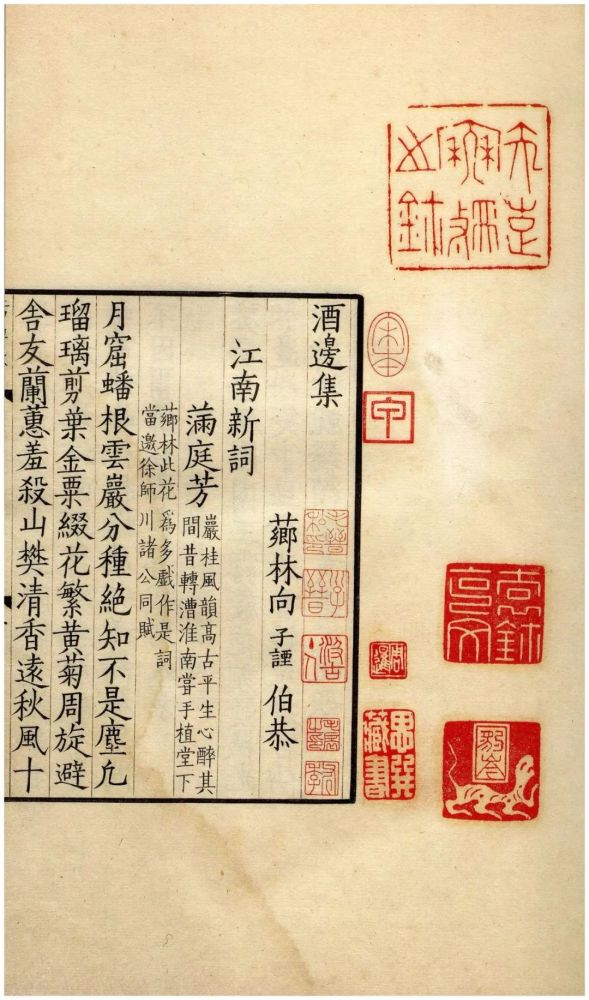 宋本
甲
周暹
酒邊集
薌林向 子諲 伯恭
江南新詞
滿庭芳
巖桂風韻髙古平生心醉其
間昔轉漕淮南嘗手植堂下
薌林此花為多戲作是詞
當邀徐師川諸公同賦
月窟蟠根雲巖分種絕知不是塵凢
瑠璃剪葉金粟綴花繁黄菊周旋避
舎友蘭蕙羞殺山樊清香遠秋風十